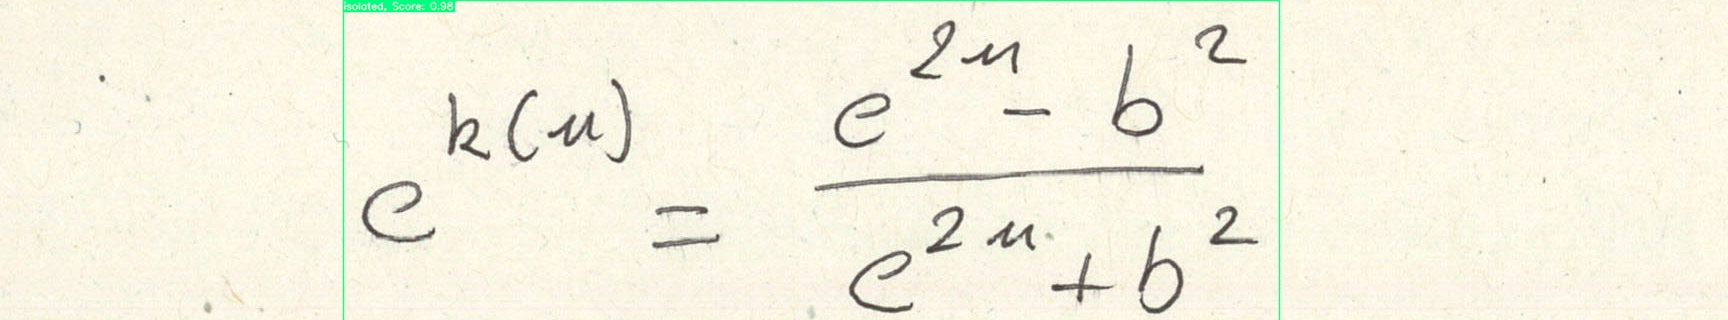 isolated, Score: 0.98
e^{k(u)} = \frac{e^{2u} - b^2}{e^{2u} + b^2}